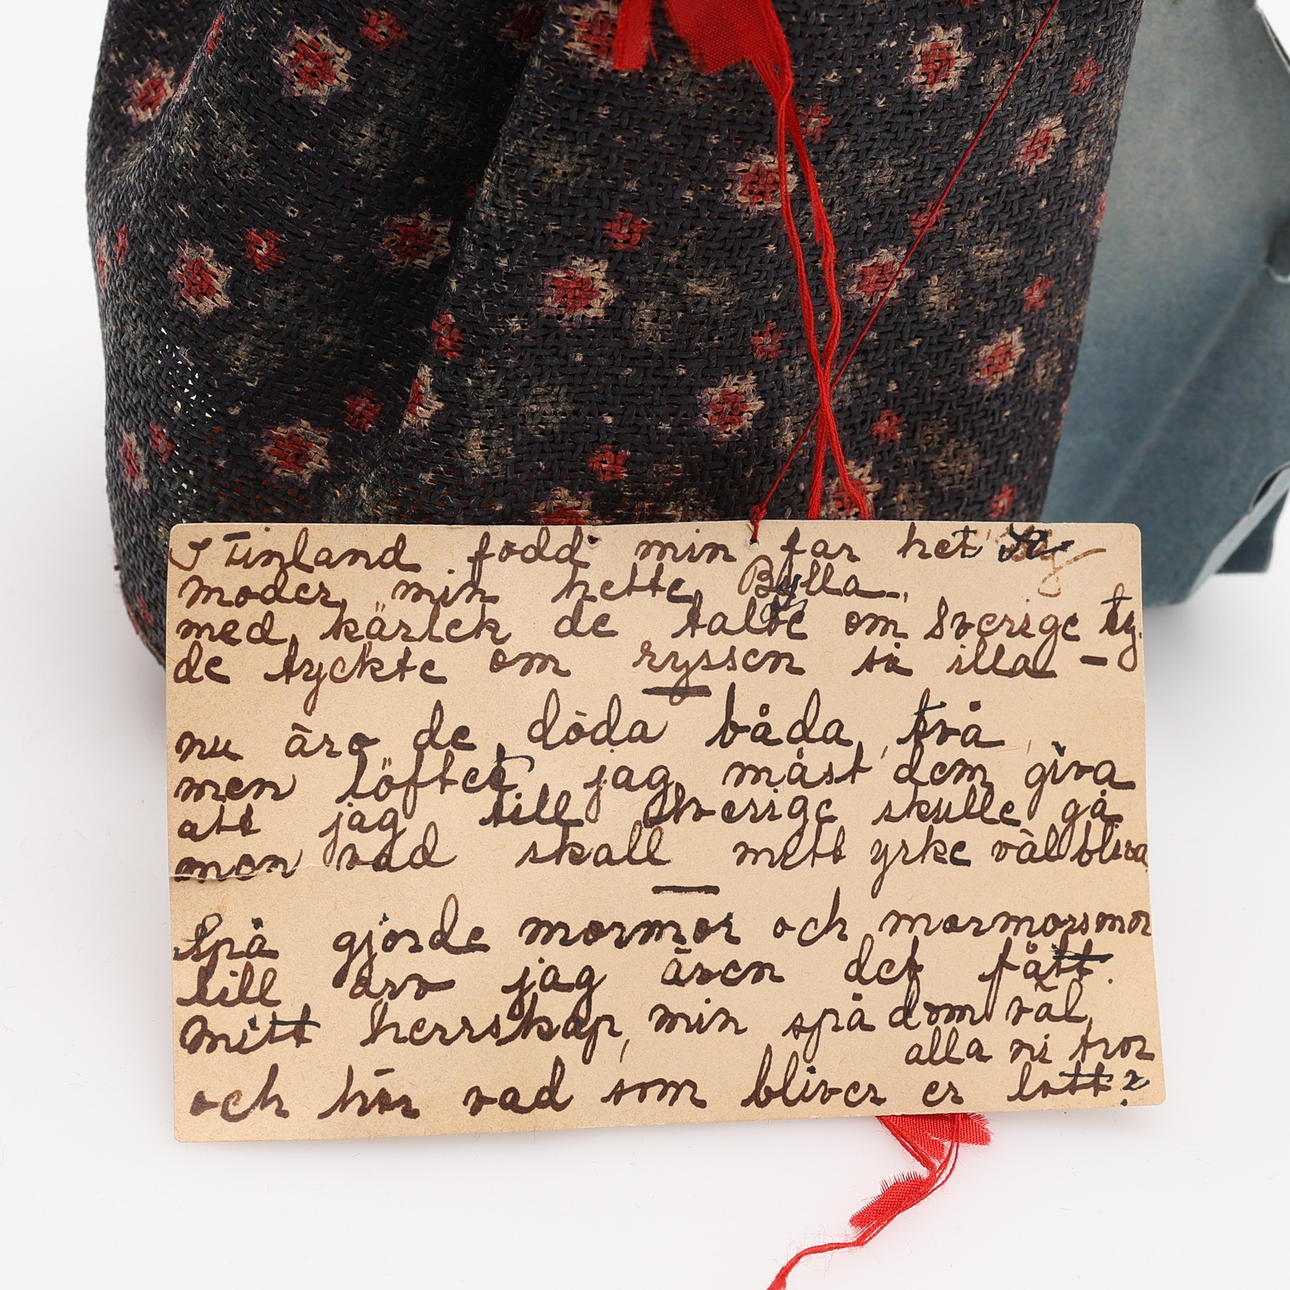 I Finland född min far het
moder min hette Bylla,
med kärlek de talte om Sverige ty.
de tyckte om ryssen så illa –
nu äro de döda båda två,
men löftet jag måst dem giva
att jag till Sverige skulle gå
men vad skall mitt yrke väl bliva
Spå gjorde mormor och mormorsmor
till arv jag även det fått.
mitt herrskap, min spådom väl
alla ni tror
och hör vad som bliver er lott?